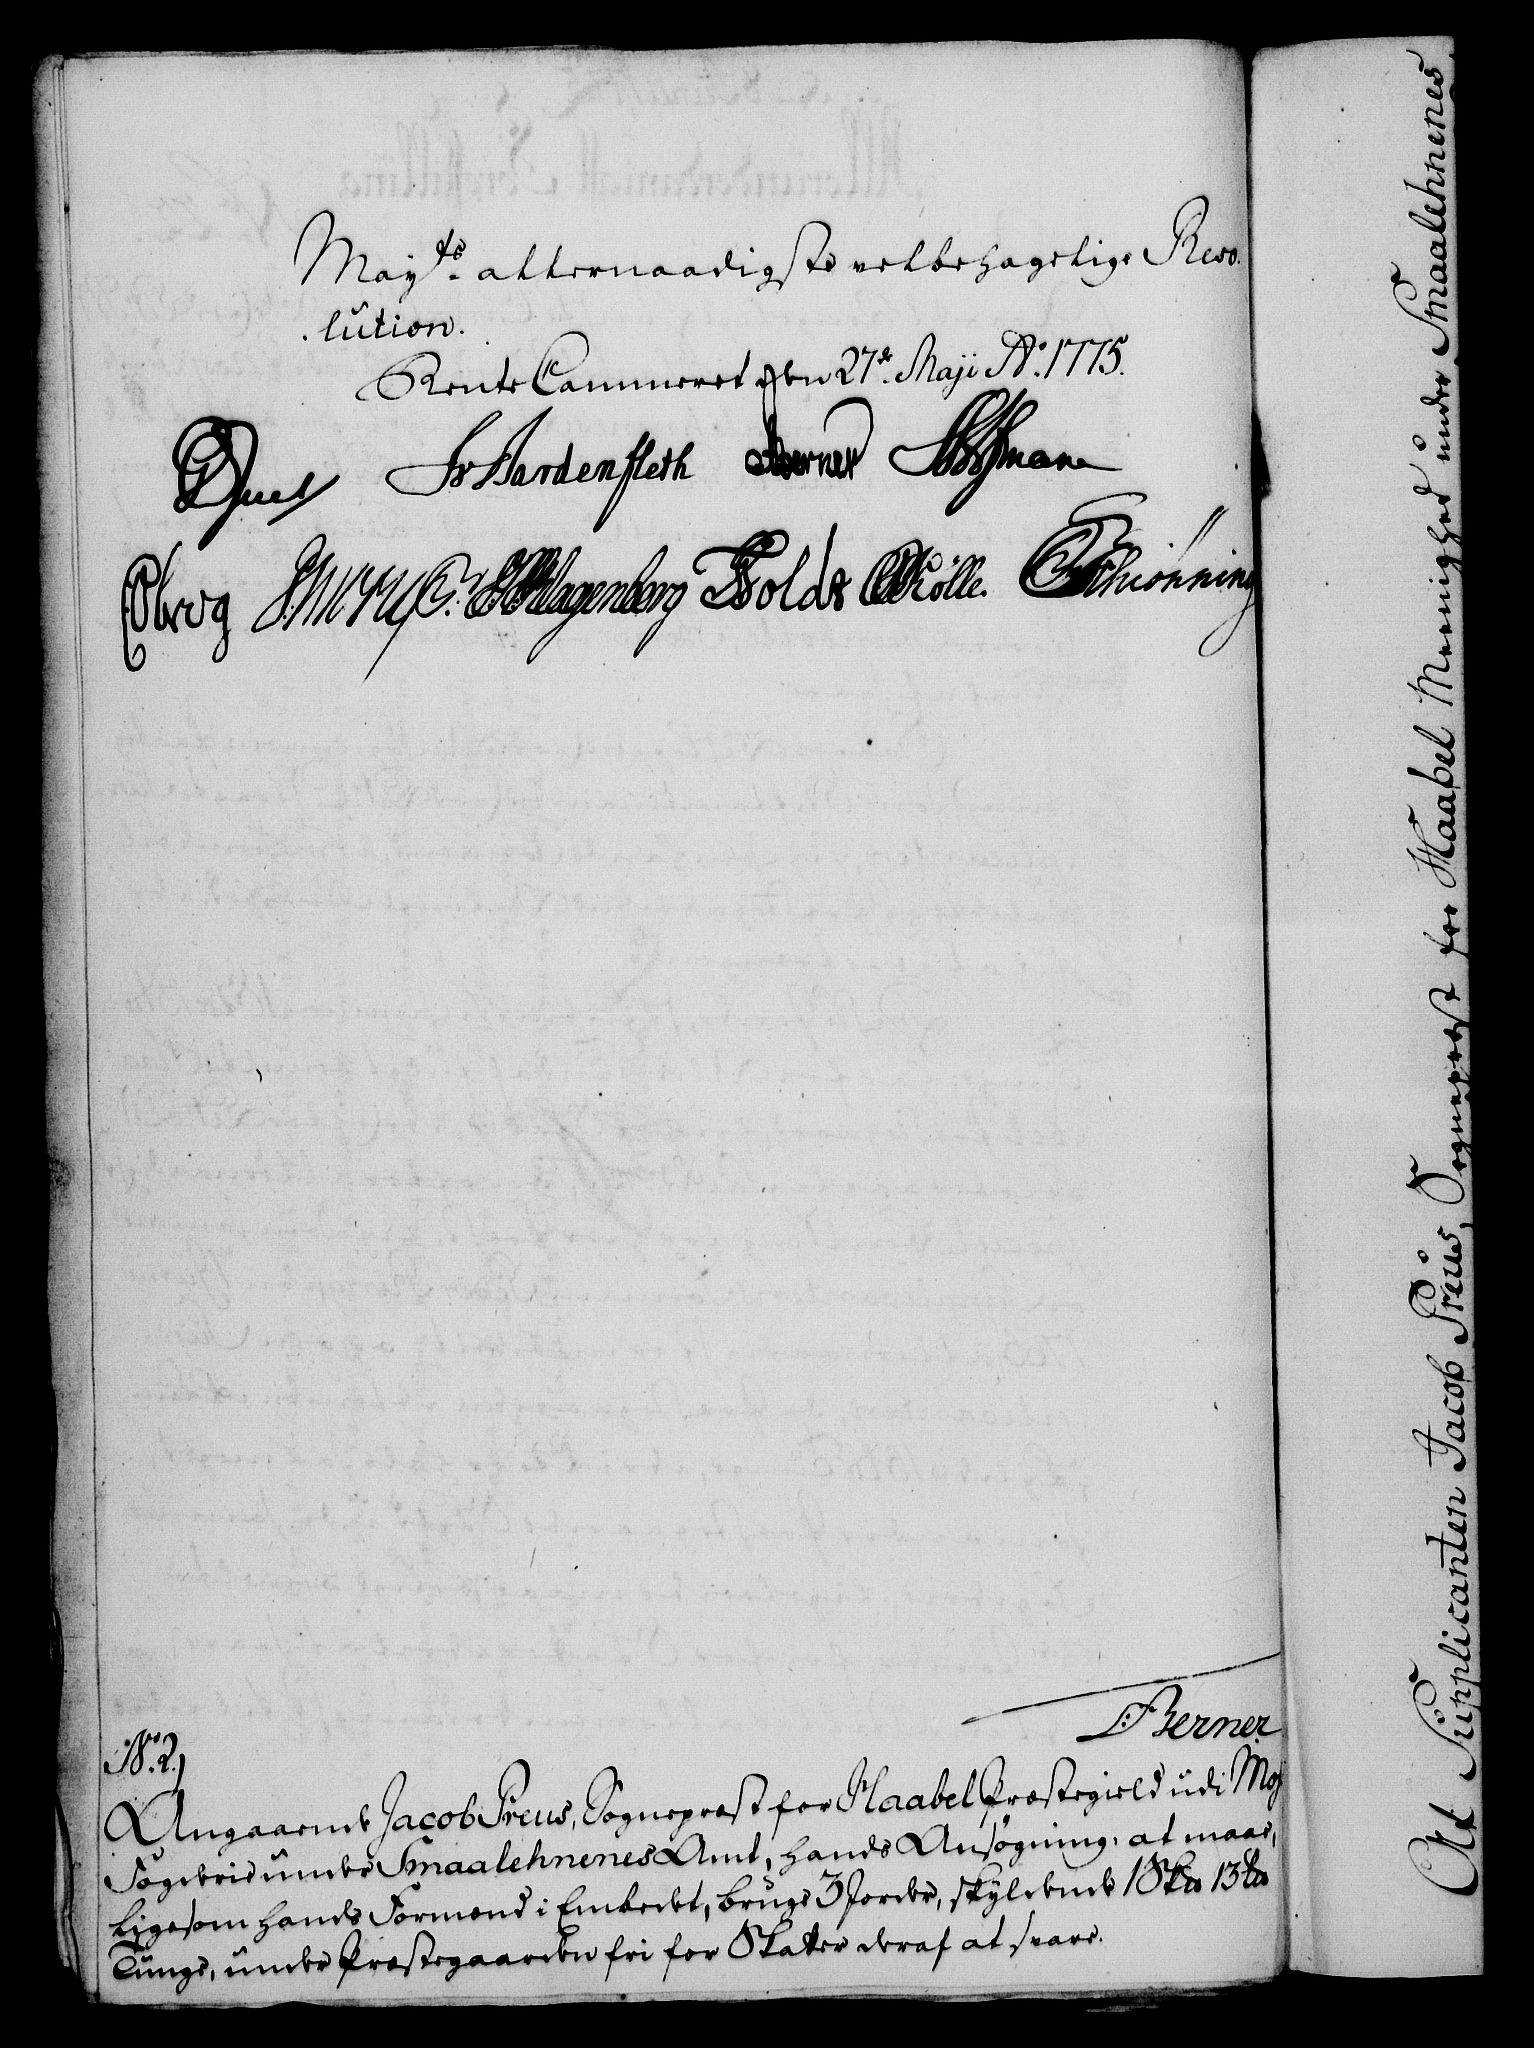 May.ts allernaadigste velbehagelige Reso-
lution.
Rente Cammeret den 27de Maji Ao. 1775.
Juel Hardenfleth Berner
Wagenberg Rølle. Schiønning
L: Berner
No. 2)
Angaaende Jacob Preus, Sognepræst for Haabel Præstegield udi Moss
Fogderie under Smaalehnenes Amt, hands Ansøgning, at maae,
ligesom hands Formænd i Embedet, bruge 3 Jorder, skyldende 1 Skp 13 Lp
Tunge, under Præstegaarden fri for Skatter deraf at svare.
At Supplicanten Jacob Preus, Sognepræst for Haabel Meenighed under Smaalehnenes